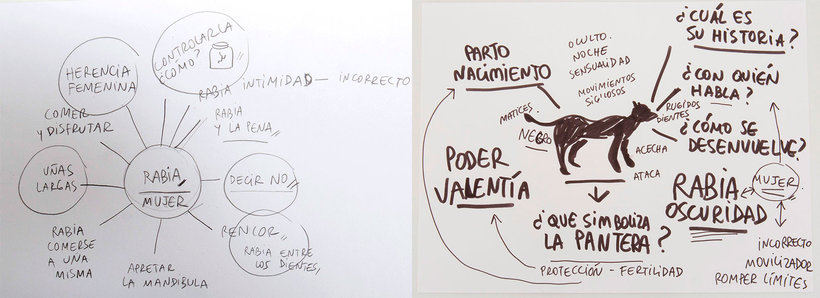 CONTROLARLA
¿COMO?
HERENCIA
FEMENINA
RABIA INTIMIDAD — INCORRECTO
COMER
Y DISFRUTAR
RABIA
Y LA PENA
UÑAS
LARGAS
RABIA
MUJER
DECIR NO
RABIA
COMERSE
A UÑA
MISMA
APRETAR
LA MANDIBULA
RENCOR
RABIA ENTRE
LOS DIENTES
¿CUÁL ES
SU HISTORIA?
PARTO
NACIMIENTO
OCULTO.
NOCHE
SENSUALIDAD
MOVIMIENTOS
SIGIOSOS
¿CON QUIÉN
HABLA?
MATICES.
NEGRO
RUGIDOS
DIENTES
¿CÓMO SE
DESENVUELVE?
ACECHA
ATACA
PODER
VALENTÍA
RABIA
OSCURIDAD
MUJER
¿QUE SIMBOLIZA
LA PANTERA?
PROTECCIÓN - FERTILIDAD
INCORRECTO
MOVILIZADOR
ROMPER LÍMITES